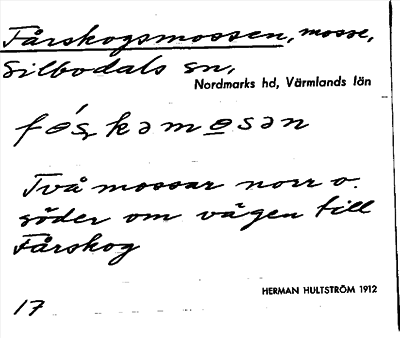 Fårskogsmossen, mosse,
Silbodals sn,
Nordmarks hd, Värmlands län
fo̩ʂkəmo̲sən
Två mossar norr o.
söder om vägen till
Fårskog
HERMAN HULTSTRÖM 1912
17